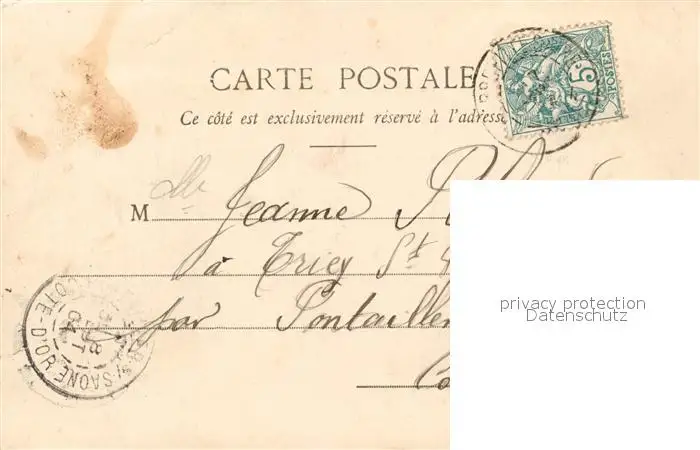 CARTE POSTALE
Ce côté est exclusivement réservé à l'adresse
5c POSTES
M lle Jeanne
à Triey St
par Pontailler
CÔTE-D'OR
S/SAONE
8
04
privacy protection
Datenschutz